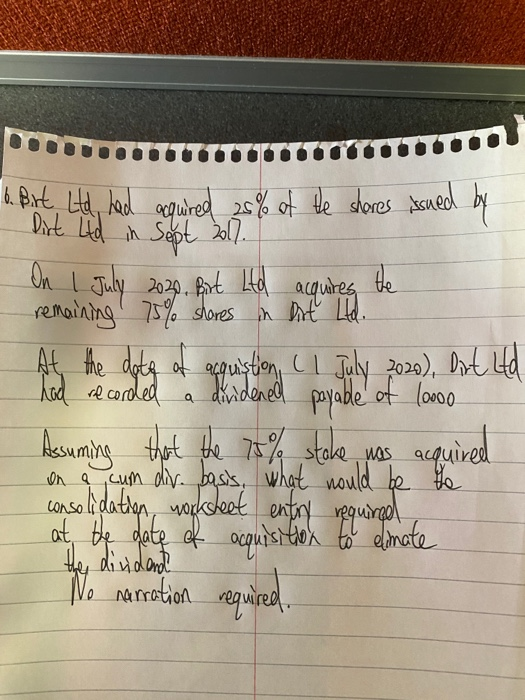 6. Birt Ltd, had acquired 25% of the shares issued by
Dirt Ltd in Sept 2017.
On 1 July 2020, Birt Ltd acquires the
remaining 75% shares in Dirt Ltd.
At the date of acquistion, (1 July 2020), Dirt Ltd
had recorded a dividened payable of 10000
Assuming that the 75% stake was acquired
on a cum div. basis, what would be the
consolidation, worksheet entry required
at the date of acquisition to elimate
the dividend?
No narration required.